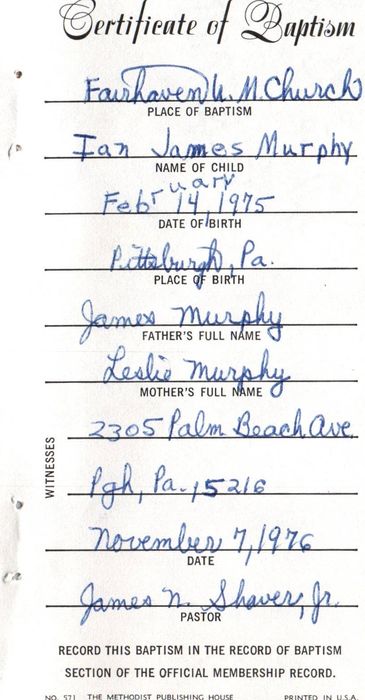 Certificate of Baptism
Fairhaven U. M. Church
PLACE OF BAPTISM
Ian James Murphy
NAME OF CHILD
February 14, 1975
DATE OF BIRTH
Pittsburgh, Pa.
PLACE OF BIRTH
James Murphy
FATHER'S FULL NAME
Leslie Murphy
MOTHER'S FULL NAME
WITNESSES
2305 Palm Beach Ave.
Pgh, Pa. 15216
November 7, 1976
DATE
James N. Shaver, Jr.
PASTOR
RECORD THIS BAPTISM IN THE RECORD OF BAPTISM
SECTION OF THE OFFICIAL MEMBERSHIP RECORD.
NO. 571 THE METHODIST PUBLISHING HOUSE PRINTED IN U.S.A.